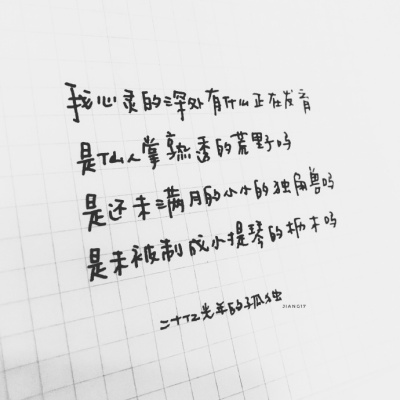 我心灵的深处有什么正在发育
是仙人掌熟透的荒野吗
是还未满月的小小的独角兽吗
是未被制成小提琴的枥木吗
二十亿光年的孤独
JIANGIY